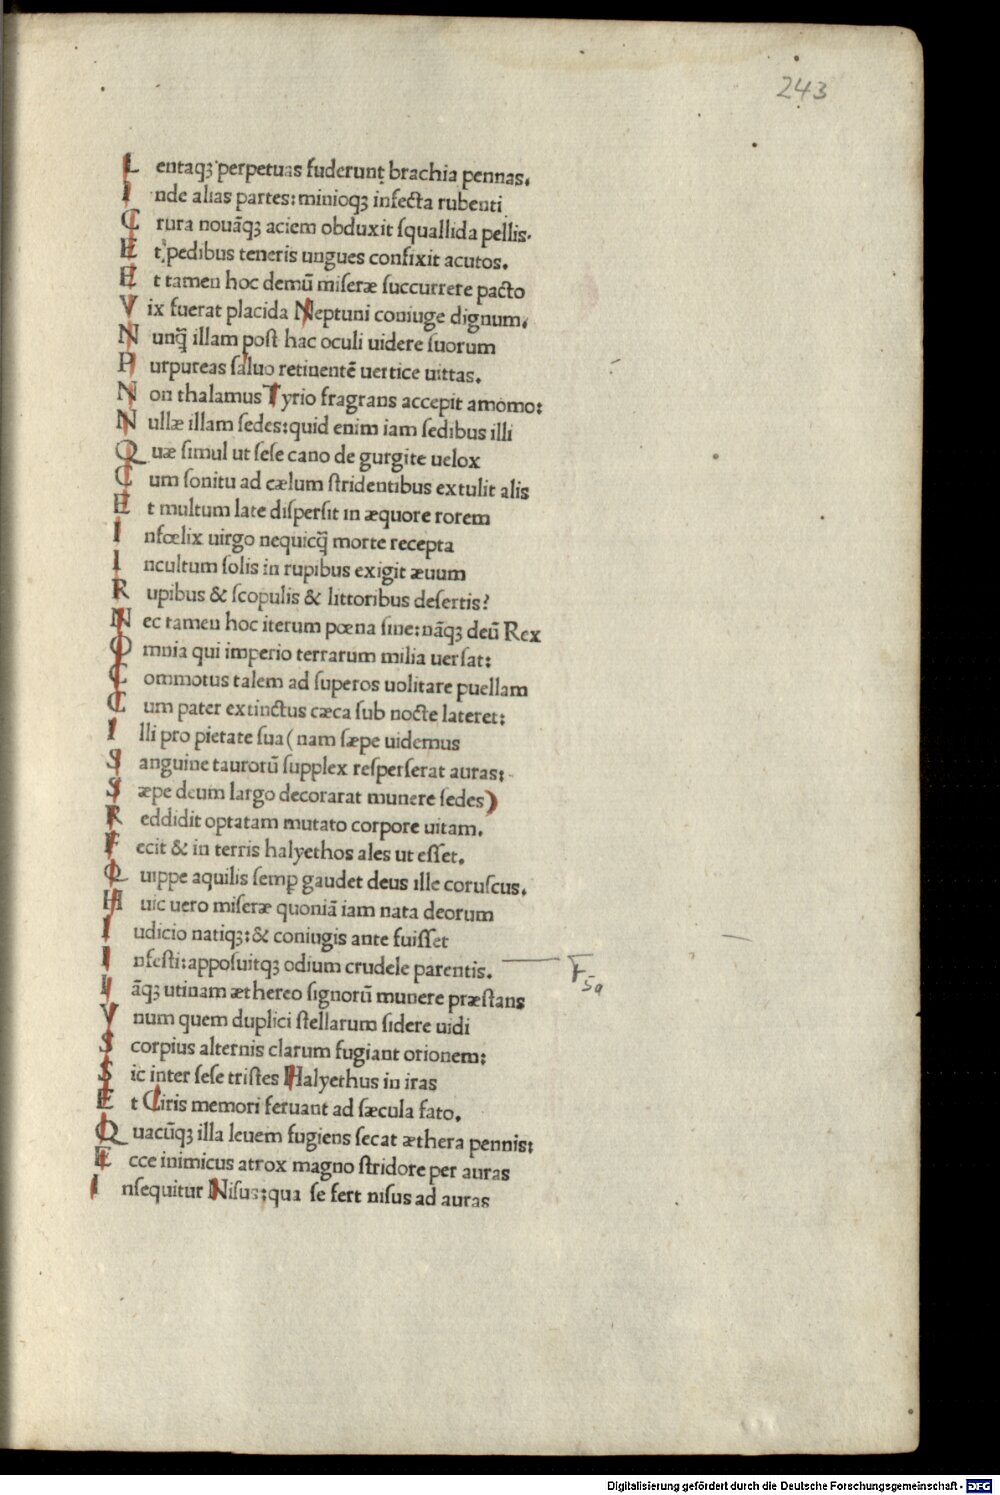 243
Lentaqꝫ perpetuas fuderunt brachia pennas.
Inde alias partes: minioqꝫ infecta rubenti
Crura nouãqꝫ aciem obduxit ſquallida pellis.
Et pedibus teneris ungues confixit acutos.
Et tamen hoc demũ miſeræ ſuccurrere pacto
Vix fuerat placida Neptuni coniuge dignum.
Nunq̃ illam poſt hac oculi uidere ſuorum
Purpureas ſaluo retinentẽ uertice uittas.
Non thalamus Tyrio fragrans accepit amomo:
Nullæ illam ſedes: quid enim iam ſedibus illi
Quæ ſimul ut ſeſe cano de gurgite uelox
Cum ſonitu ad cælum ſtridentibus extulit alis
Et multum late diſperſit in æquore rorem
Infœlix uirgo nequicq̃ morte recepta
Incultum ſolis in rupibus exigit æuum
Rupibus & ſcopulis & littoribus deſertis?
Nec tamen hoc iterum pœna ſine: nãqꝫ deũ Rex
Omnia qui imperio terrarum milia uerſat:
Commotus talem ad ſuperos uolitare puellam
Cum pater extinctus cæca ſub nocte lateret:
Illi pro pietate ſua (nam ſæpe uidemus
Sanguine taurorũ ſupplex reſperſerat auras:
Sæpe deum largo decorarat munere ſedes)
Reddidit optatam mutato corpore uitam.
Fecit & in terris halyethos ales ut eſſet.
Quippe aquilis ſemp̱ gaudet deus ille coruſcus.
Huic uero miſeræ quoniã iam nata deorum
Iudicio natiqꝫ: & coniugis ante fuiſſet
Infeſti: appoſuitqꝫ odium crudele parentis.
Iãqꝫ utinam æthereo ſignorũ munere præſtans
Vnum quem duplici ſtellarum ſidere uidi
Scorpius alternis clarum fugiant orionem:
Sic inter ſeſe triſtes Halyethus in iras
Et Ciris memori feruant ad ſæcula fato.
Quacũqꝫ illa leuem fugiens ſecat æthera pennis:
Ecce inimicus atrox magno ſtridore per auras
Inſequitur Niſus: qua ſe fert niſus ad auras
Digitalisierung gefördert durch die Deutsche Forschungsgemeinschaft - DFG